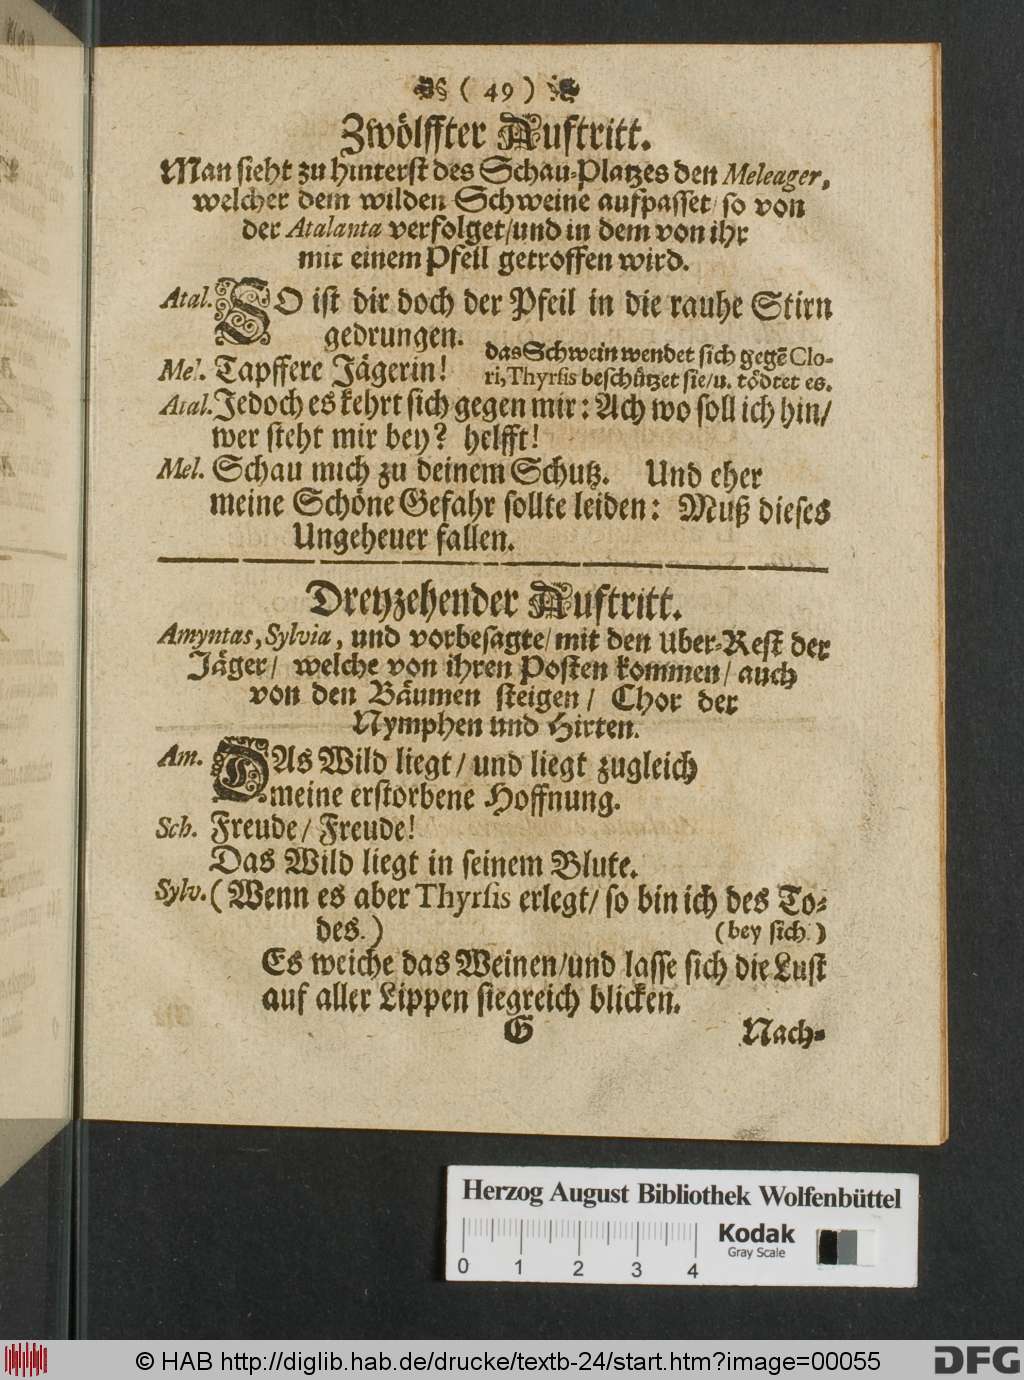 ( 49 )
Zwölffter Auftritt.
Man sieht zu hinterst des Schau-Platzes den Meleager,
welcher dem wilden Schweine aufpasset/ so von
der Atalanta verfolget/und in dem von ihr
mit einem Pfeil getroffen wird.
Atal. SO ist dir doch der Pfeil in die rauhe Stirn
gedrungen.
das Schwein wendet sich gegẽ Clo-
Mel. Tapffere Jägerin! ri, Thyrsis beschützet sie/u. tödtet es.
Atal. Jedoch es kehrt sich gegen mir: Ach wo soll ich hin/
wer steht mir bey? helfft!
Mel. Schau mich zu deinem Schutz. Und eher
meine Schöne Gefahr sollte leiden: Muß dieses
Ungeheuer fallen.
Dreyzehender Auftritt.
Amyntas, Sylvia, und vorbesagte/ mit den Uber-Rest der
Jäger/ welche von ihren Posten kommen/ auch
von den Bäumen steigen/ Chor der
Nymphen und Hirten.
Am. DAs Wild liegt/ und liegt zugleich
meine erstorbene Hoffnung.
Sch. Freude/ Freude!
Das Wild liegt in seinem Blute.
Sylv. (Wenn es aber Thyrsis erlegt/ so bin ich des To-
des.) (bey sich.)
Es weiche das Weinen/und lasse sich die Lust
auf aller Lippen siegreich blicken.
G Nach-
Herzog August Bibliothek Wolfenbüttel
Kodak
Gray Scale
0 1 2 3 4
© HAB http://diglib.hab.de/drucke/textb-24/start.htm?image=00055
DFG